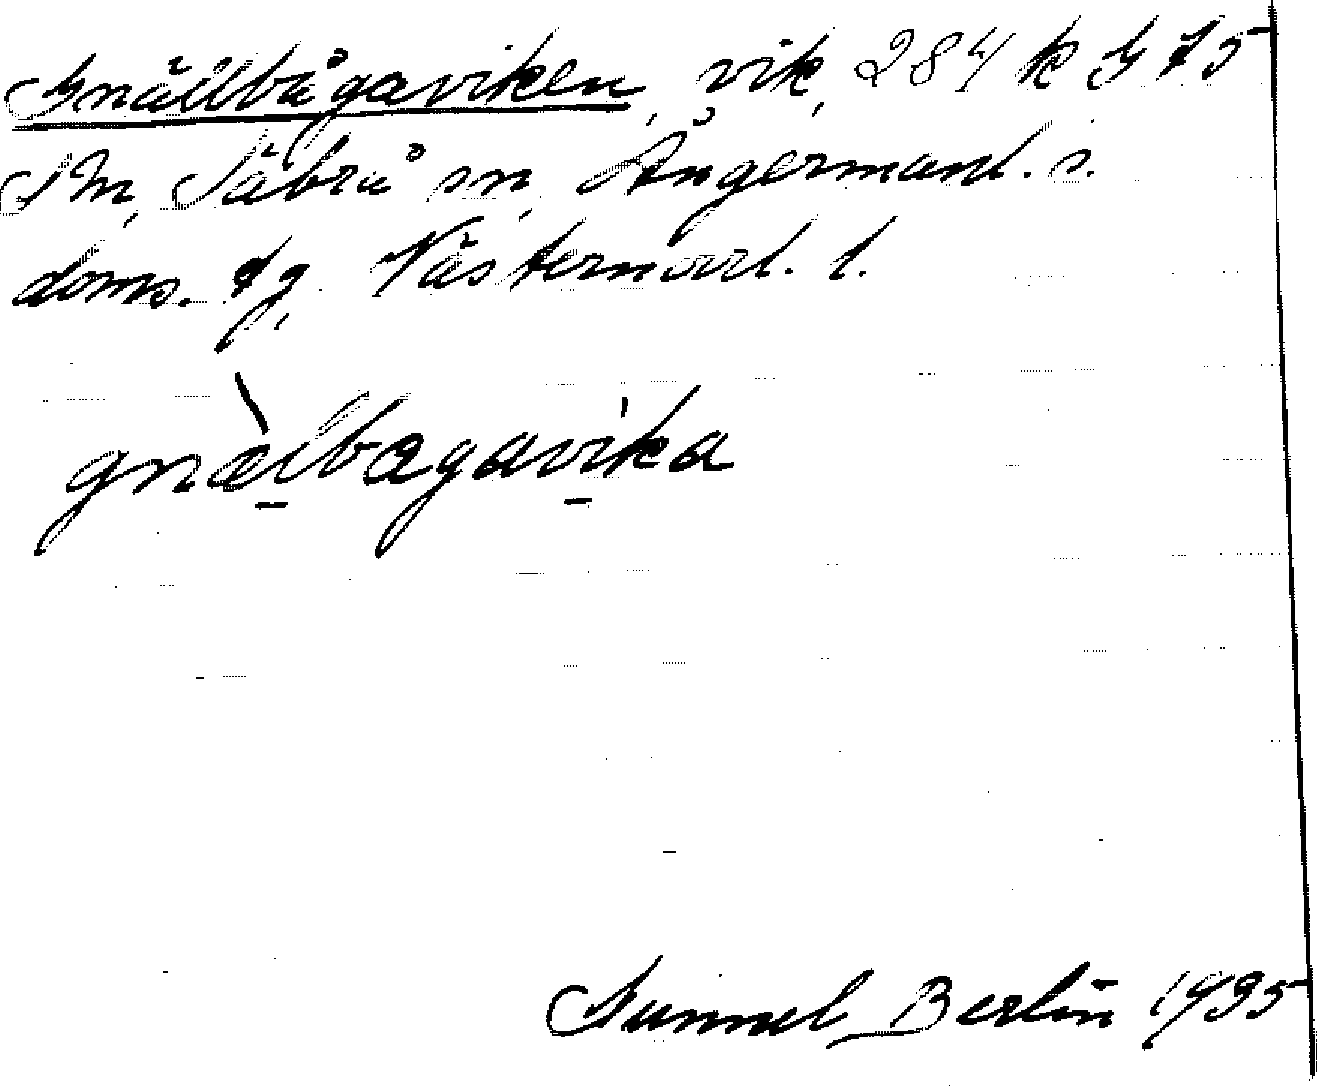 Gnällbågaviken, vik, 284 k G 75
Sm, Säbrå sn, Ångermanl. s.
doms. tg, Västernorrl. l.
gnælbagavika
Gunnel Berlin 1935